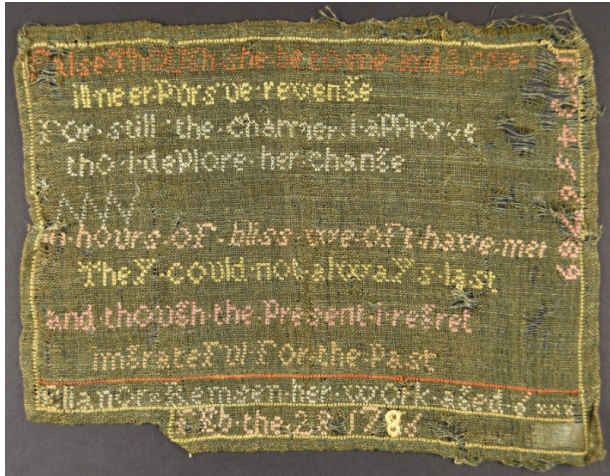 False Though she be to me and Love
ill neer Porsue revenge
For still the charmer i approve
tho i deplore her change
in hours of bliss we oft have met
They could not always last
and though the Present i regret
im grateful for the Past
her work aged
Feb the 178